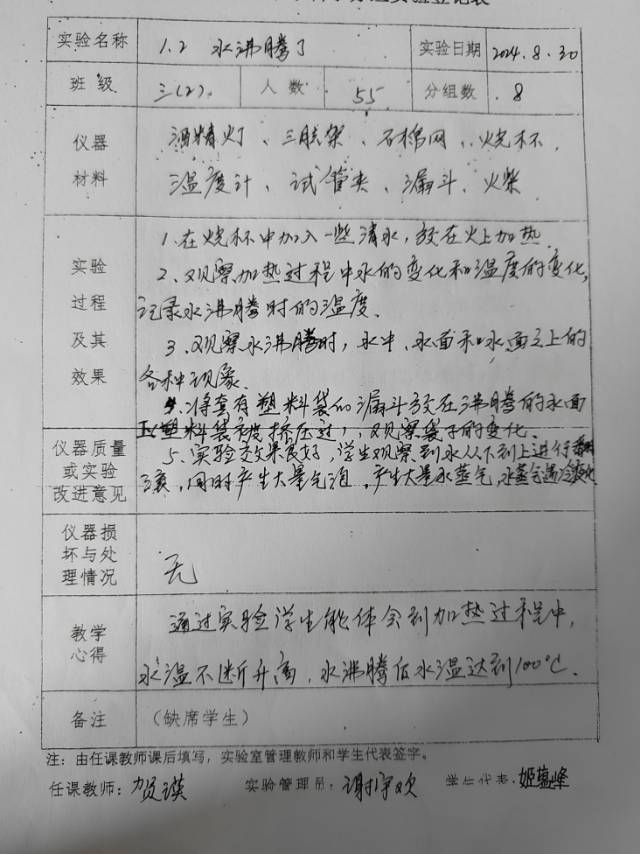 实验名称 1.2 水沸腾了 实验日期 2024.8.30
班 级 三(2). 人 数 55 分组数 .8
仪器 酒精灯、三脚架、石棉网、烧杯、
材料 温度计、试管夹、漏斗、火柴
1.在烧杯中加入一些清水,放在火上加热.
实验 2.观察加热过程中水的变化和温度的变化,
过程 记录水沸腾时的温度.
及其 3.观察水沸腾时,水中、水面和水面之上的
效果 各种现象.
4.将套有塑料袋的漏斗放在沸腾的水面
上(塑料袋 挤压过),观察袋子的变化.
仪器质量 5.实验效果良好,学生观察到水从下到上进行翻
或实验 滚,同时产生大量气泡,产生大量水蒸气,水蒸气遇冷
改进意见
仪器损
坏与处 无
理情况
教学 通过实验学生能体会到加热过程中,
心得 水温不断升高,水沸腾后水温达到100℃.
备注 (缺席学生)
注:由任课教师课后填写,实验室管理教师和学生代表签字。
任课教师: 贺瑛 实验管理员: 谢 欢 学生代表: 姬 峰